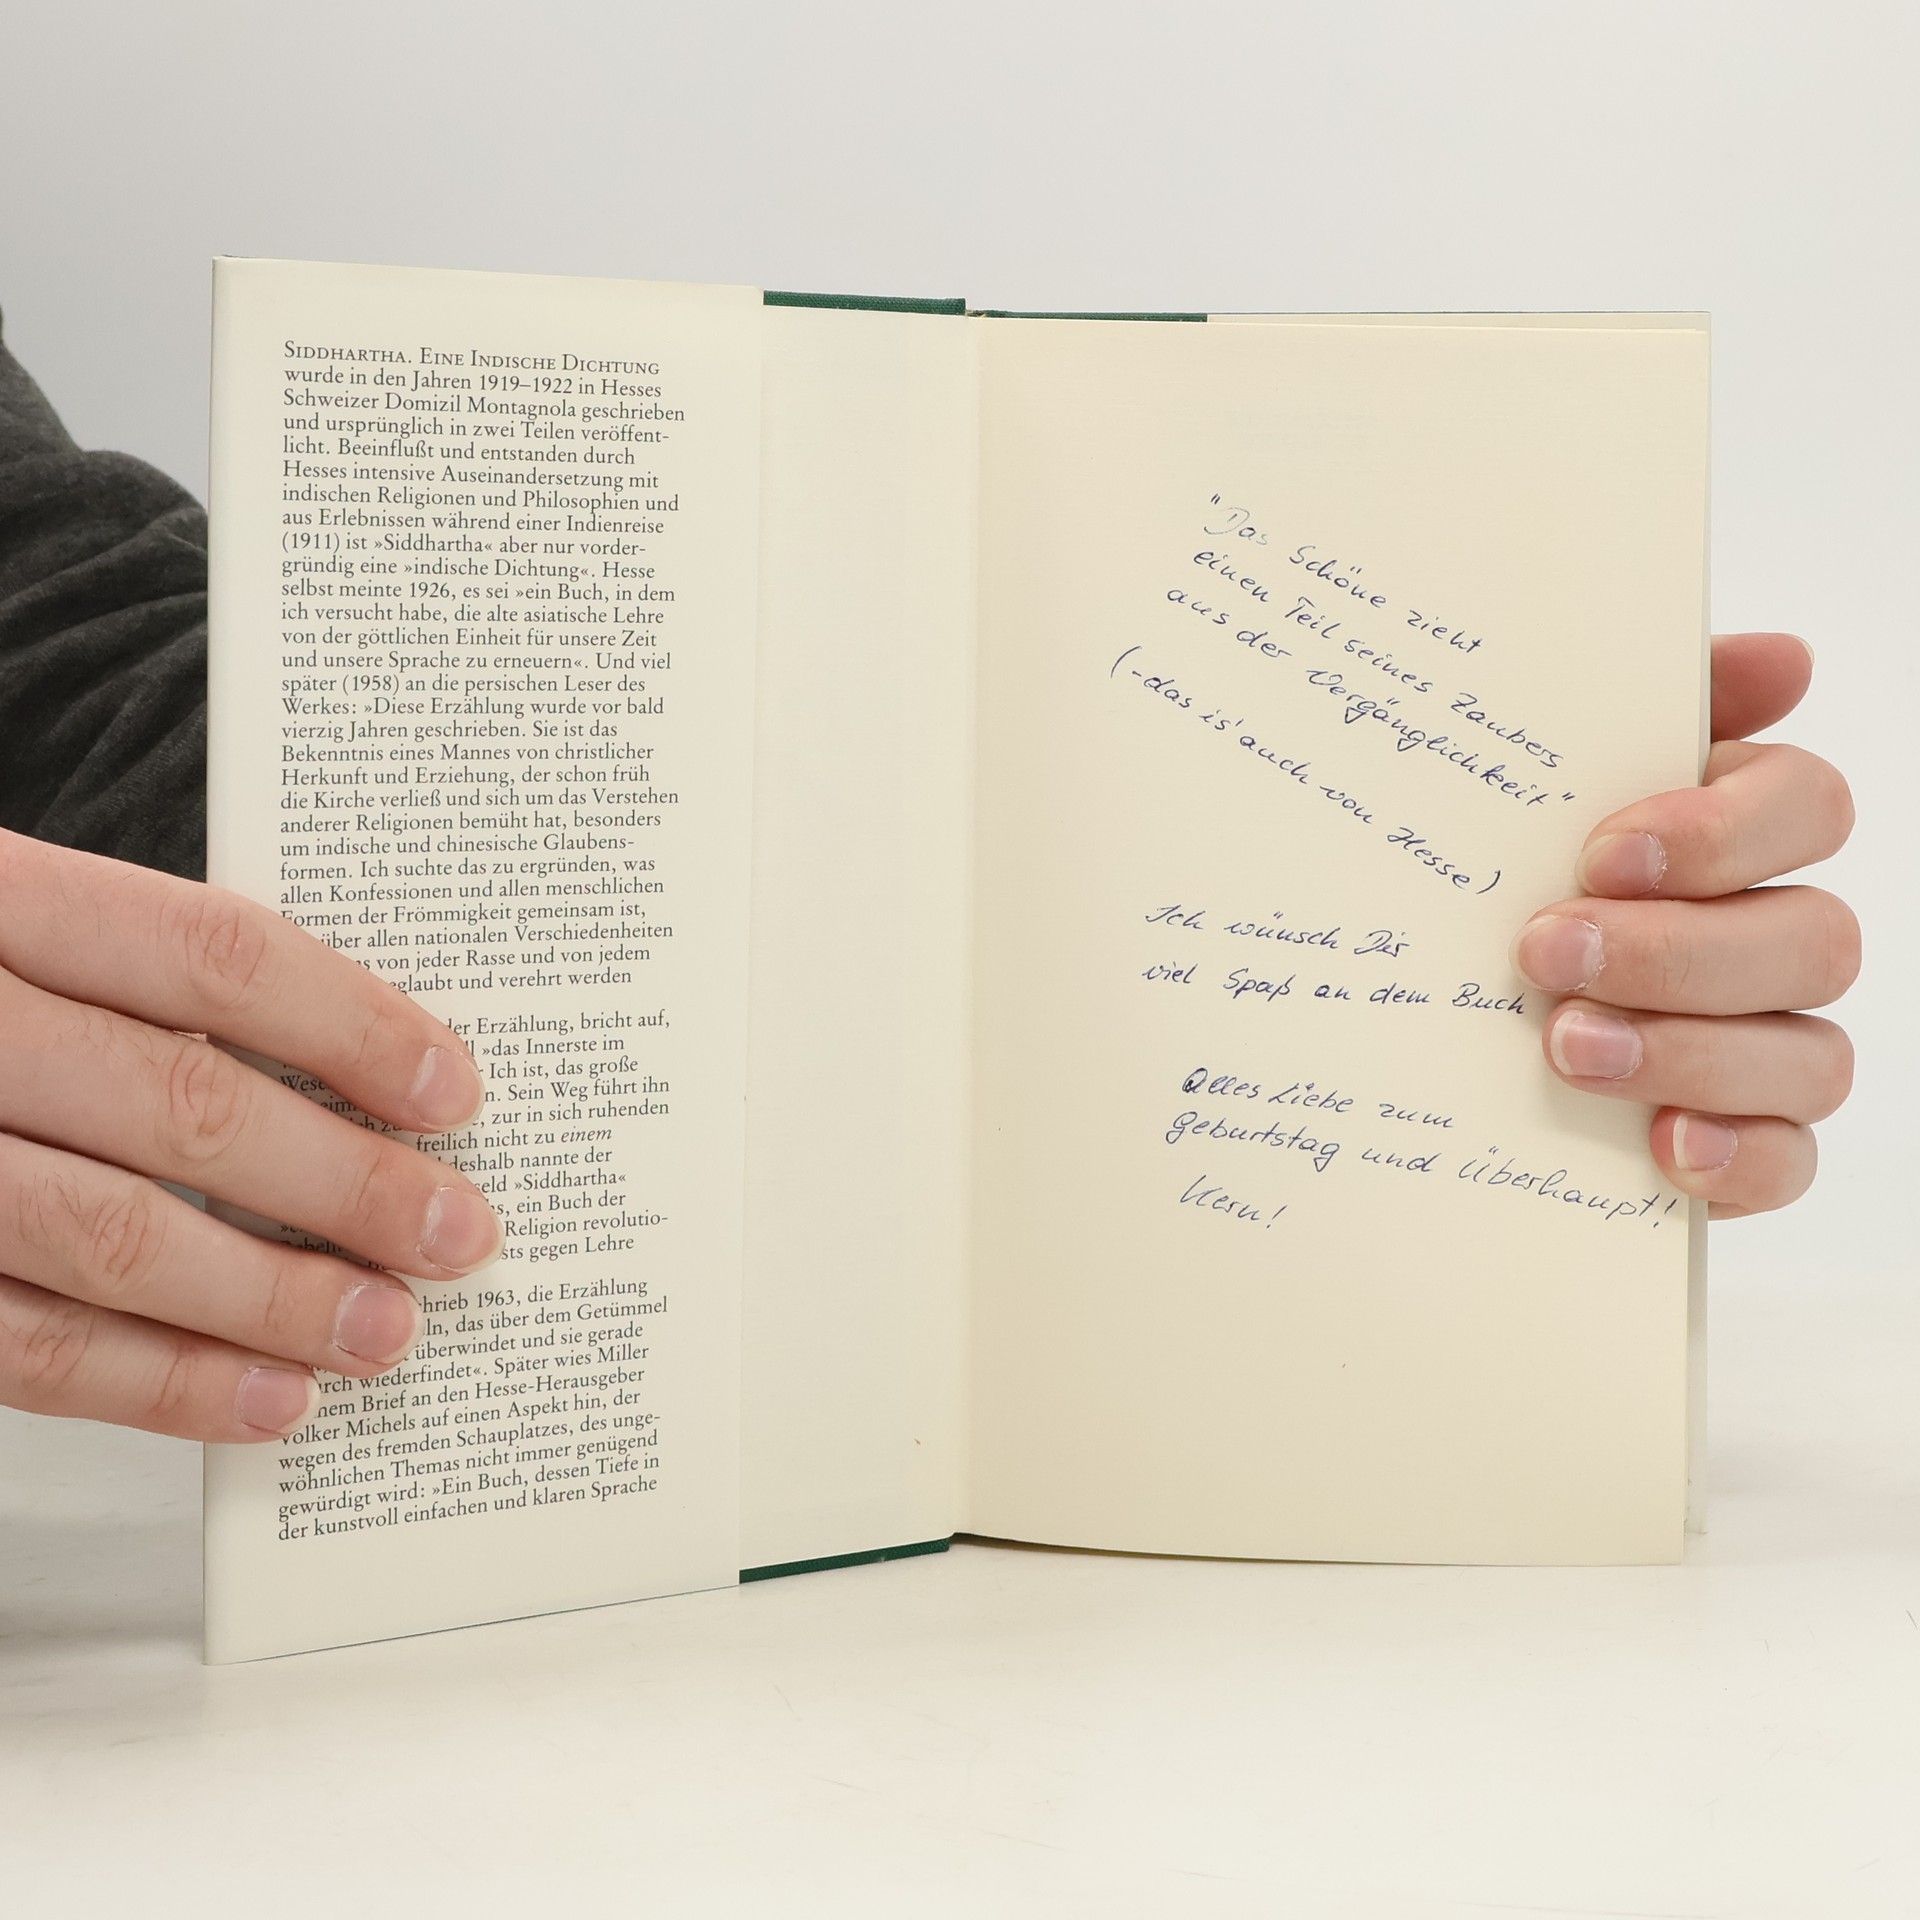 SIDDHARTHA. EINE INDISCHE DICHTUNG
wurde in den Jahren 1919–1922 in Hesses
Schweizer Domizil Montagnola geschrieben
und ursprünglich in zwei Teilen veröffent-
licht. Beeinflußt und entstanden durch
Hesses intensive Auseinandersetzung mit
indischen Religionen und Philosophien und
aus Erlebnissen während einer Indienreise
(1911) ist »Siddhartha« aber nur vorder-
gründig eine »indische Dichtung«. Hesse
selbst meinte 1926, es sei »ein Buch, in dem
ich versucht habe, die alte asiatische Lehre
von der göttlichen Einheit für unsere Zeit
und unsere Sprache zu erneuern«. Und viel
später (1958) an die persischen Leser des
Werkes: »Diese Erzählung wurde vor bald
vierzig Jahren geschrieben. Sie ist das
Bekenntnis eines Mannes von christlicher
Herkunft und Erziehung, der schon früh
die Kirche verließ und sich um das Verstehen
anderer Religionen bemüht hat, besonders
um indische und chinesische Glaubens-
formen. Ich suchte das zu ergründen, was
allen Konfessionen und allen menschlichen
Formen der Frömmigkeit gemeinsam ist,
über allen nationalen Verschiedenheiten
von jeder Rasse und von jedem
geglaubt und verehrt werden
der Erzählung, bricht auf,
»das Innerste im
Ich ist, das große
Sein Weg führt ihn
zur in sich ruhenden
freilich nicht zu einem
deshalb nannte der
»Siddhartha«
ein Buch der
Religion revolutio-
gegen Lehre
1963, die Erzählung
das über dem Getümmel
überwindet und sie gerade
wiederfindet«. Später wies Miller
Brief an den Hesse-Herausgeber
Volker Michels auf einen Aspekt hin, der
wegen des fremden Schauplatzes, des unge-
wöhnlichen Themas nicht immer genügend
gewürdigt wird: »Ein Buch, dessen Tiefe in
der kunstvoll einfachen und klaren Sprache
"Das Schöne zieht
einen Teil seines Zaubers
aus der Vergänglichkeit"
(-das is' auch von Hesse)
Ich wünsch Dir
viel Spaß an dem Buch
Alles Liebe zum
Geburtstag und Überhaupt!